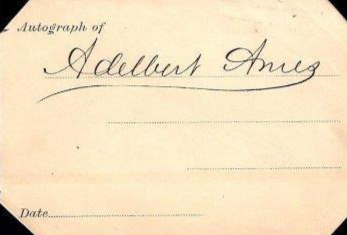 Autograph of
Adelbert Ames
Date